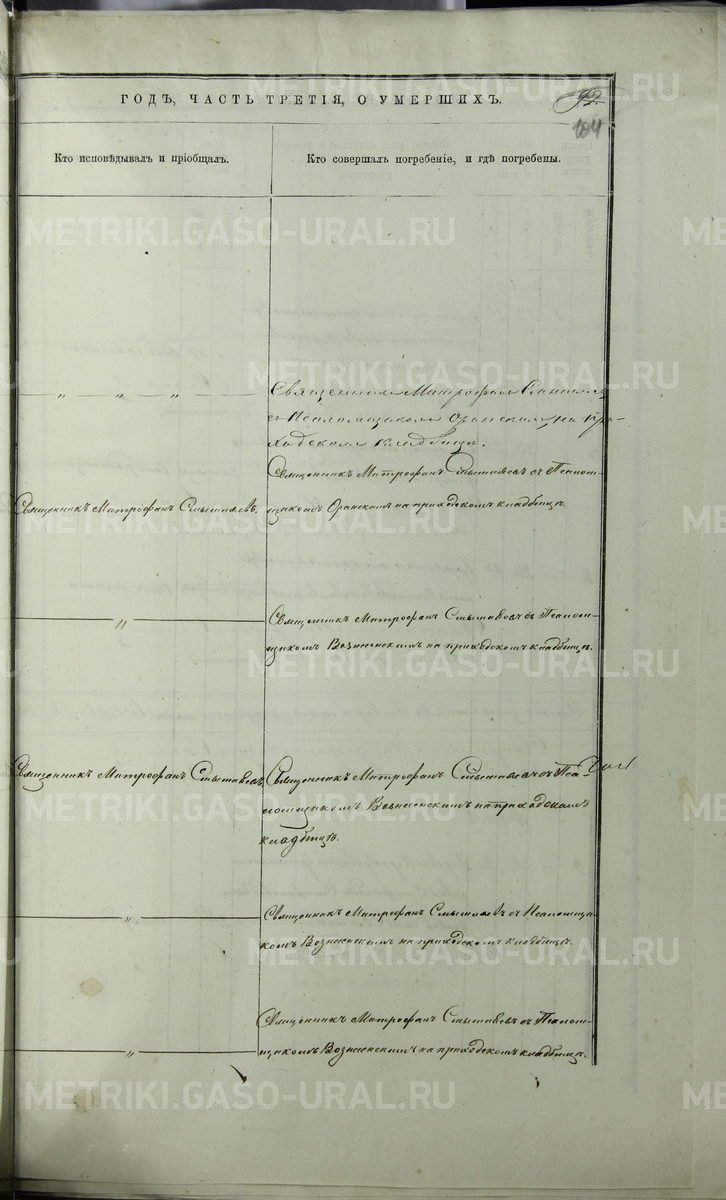 ГОДЪ, ЧАСТЬ ТРЕТІЯ, О УМЕРШИХЪ.
92.
104
Кто исповѣдывалъ и пріобщалъ.
Кто совершалъ погребеніе, и гдѣ погребены.
METRIKI.GASO-URAL.RU
„ „ „
Священникъ Митрофанъ
съ Псаломщикомъ Оранскимъ на при-
ходскомъ кладбищѣ.
Священникъ Митрофанъ Смышляевъ.
Священникъ Митрофанъ Смышляевъ съ Псалом-
щикомъ Оранскимъ на приходскомъ кладбищѣ.
„
Священникъ Митрофанъ Смышляевъ съ Псалом-
щикомъ Вознесенскимъ на приходскомъ кладбищѣ.
Священникъ Митрофанъ Смышляевъ
Священникъ Митрофанъ Смышляевъ съ Пса-
ломщикомъ Вознесенскимъ на приходскомъ
кладбищѣ.
„
Священникъ Митрофанъ Смышляевъ съ Псаломщи-
комъ Вознесенскимъ на приходскомъ кладбищѣ.
„
Священникъ Митрофанъ Смышляевъ съ Псалом-
щикомъ Вознесенскимъ на приходскомъ кладбищѣ.